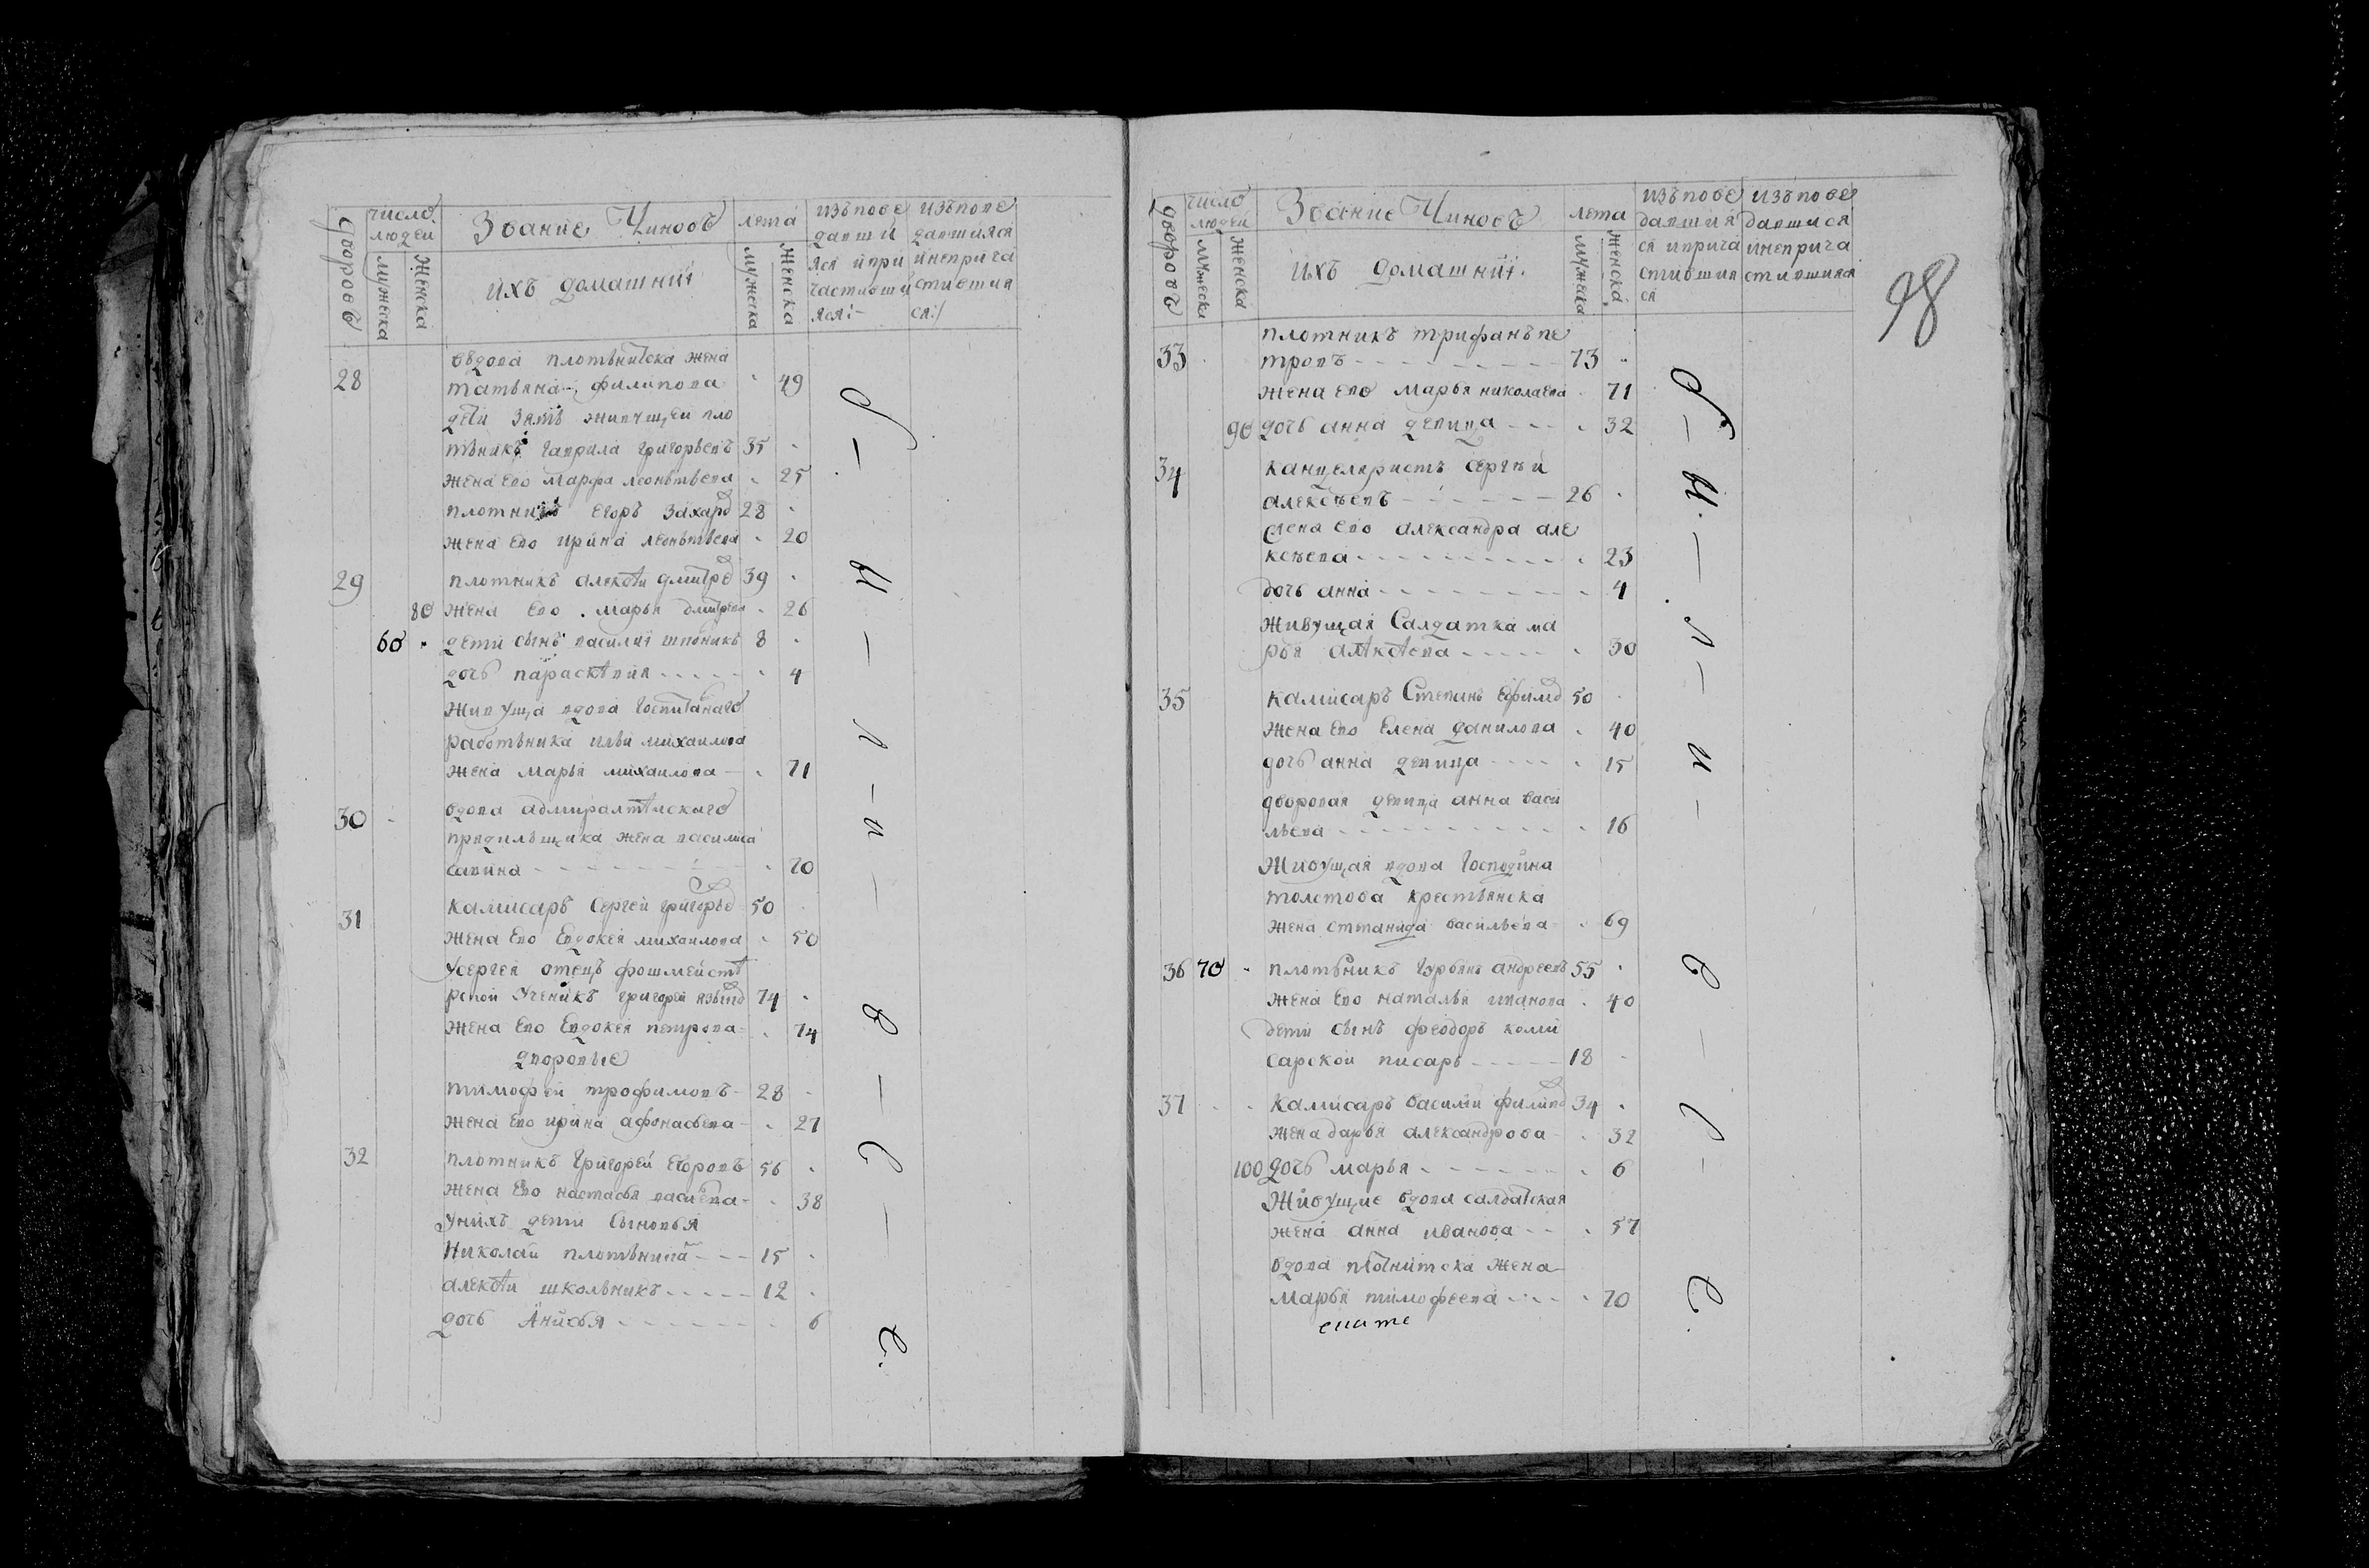 дворовъ
число людей
мужеска
женска
Звание Чиновъ
ихъ домашнии
лета
мужеска
женска
изъпове
давши
яся ипри
частивши
яся:-
изъпове
давшияся
инеприча
стившия
ся:/
вдова плотьнитска жена
28 татьяна филипова 49
дети зять живущеи пло
тьникъ гаврила григорьевъ 35
жена ево марфа леонътьева 25
плотникъ егоръ захаро 28
жена ево ирина леонътьева 20
29 плотникъ алексѣи дмитре 39
80 жена ево марья дмитрева 26
60 дети сынъ василиї 8
дочь парасковия 4
живуща вдова госпитална̃го
работьника ильи михаилова
жена марья михаилова 71
30 вдова адмиралтѣискаго
прядильщика жена василиса
савина 70
31 камисаръ Сергеи григорье 50
жена ево евдокея михаилова 50
Усергея отецъ
ученикъ григореи 74
жена ево Евдокея петрова 74
дворовые
тимофеи трофимовъ 28
жена ево ирина афонасьева 27
32 плотникъ Григореи Егоровъ 56
жена ево настасья василева 38
Унихъ дети Сыновья
Николаи плотьника 15
алексѣи школьникъ 12
дочь Анисья 6
о – н – л – и – в – с – е.
98
дворовъ
число людеи
мужеска
женска
Звание Чиновъ
ихъ домашниї
лета
мужеска
женска
изъпове
давшия
ся иприча
стившия
ся
изъпове
давшися
инеприча
стившияся
плотникъ трифанъ пе
33 тровъ 73
жена ево марья николаева 71
90 дочь анна девица 32
34 канцеляристъ сергѣи
алексѣевъ 26
жена ево александра але
ксѣева 23
дочь анна 4
живущая Салдатка ма
рья алѣксѣева 30
35 камисаръ Степанъ Ефимо 50
жена ево Елена данилова 40
дочь анна девица 15
дворовая девица анна васи
льева 16
Живущая вдова Господина
толстова крестьянска
жена степанида васильева 69
36 70 плотьникъ гурьянъ андреевъ 55
жена ево наталья иванова 40
дети сынъ феодоръ коми
сарской писарь 18
37 камисаръ василии филипо 34
жена дарья александрова 32
100 дочь марья 6
Живущие вдова салдатская
жена анна иванова 57
вдова плотнитска жена
марья тимофеева 70
о – н – л – и – в – с – е.